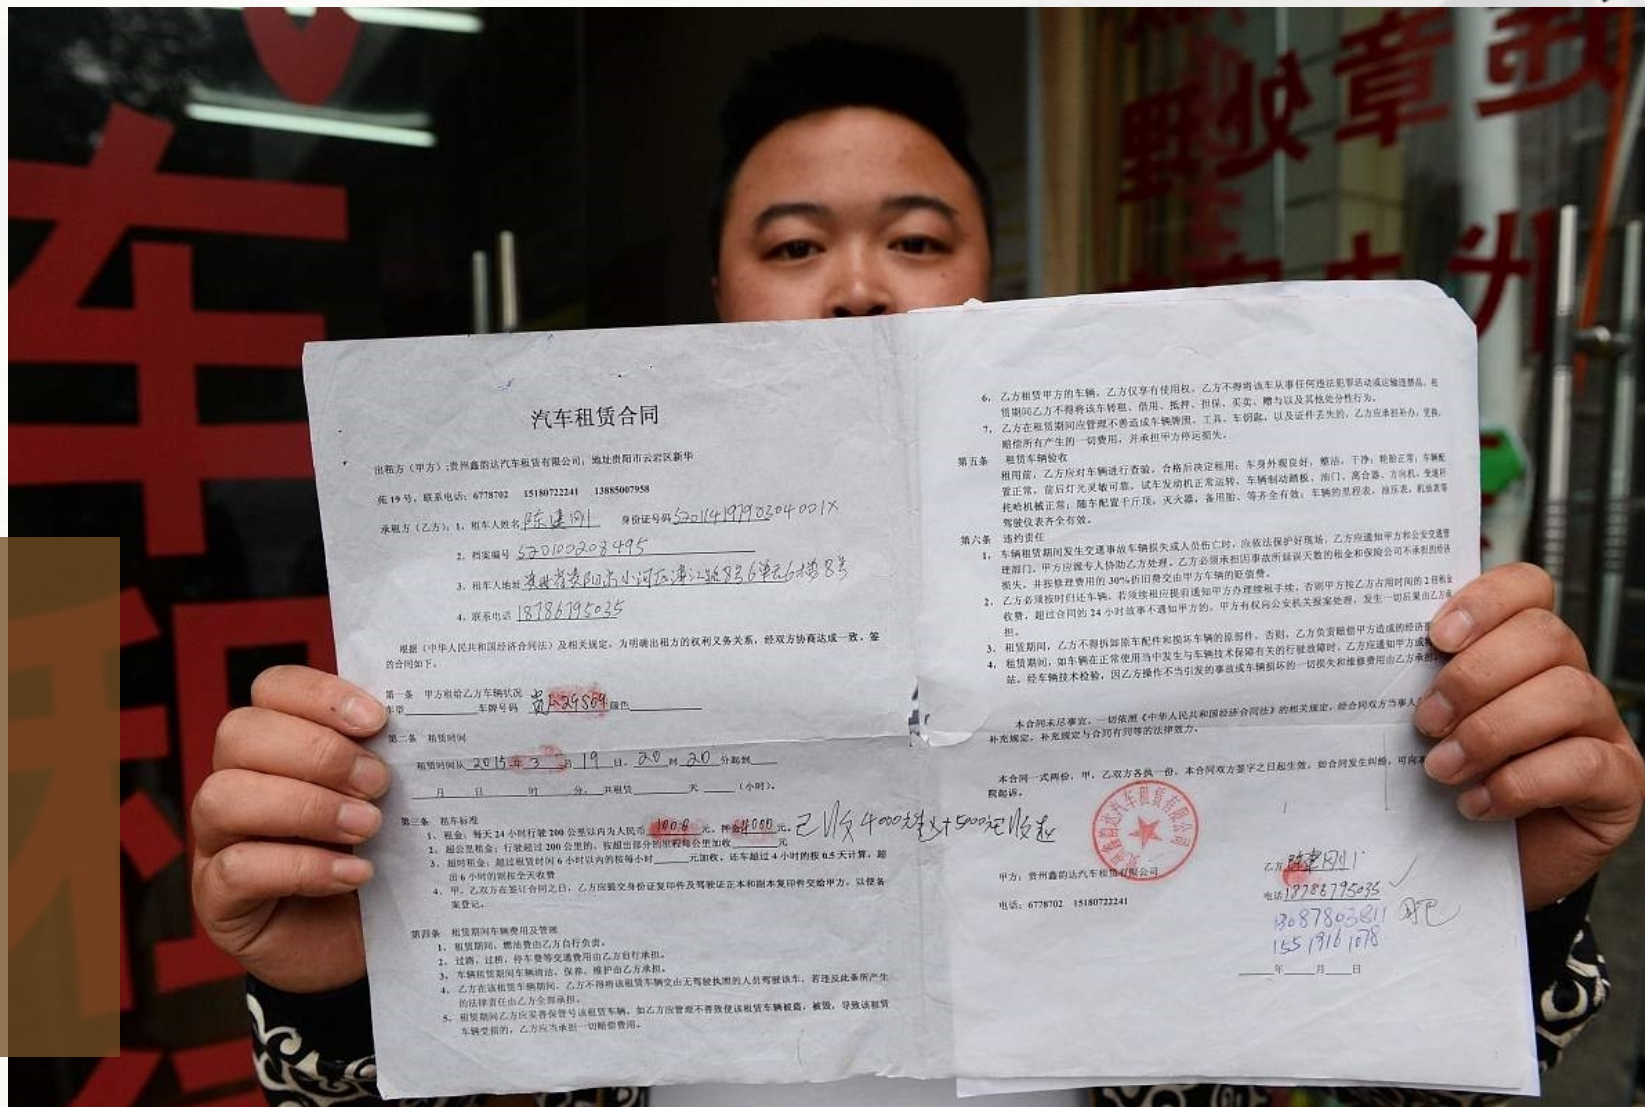 车
租
章处理
汽车租赁合同
出租方（甲方）:贵州鑫韵达汽车租赁有限公司；地址贵阳市云岩区新华
苑 19 号，联系电话：6778702 15180722241 13885007958
承租方（乙方）：1、租车人姓名 陈建刚 身份证号码
2、档案编号 520100208495
3、租车人地址 贵州省贵阳市小河区 路8号6单元6楼8号
4、联系电话 18786795035
根据《中华人民共和国经济合同法》及相关规定，为明确出租方的权利义务关系，经双方协商达成一致，签
的合同如下。
第一条 甲方租给乙方车辆状况
车型 车牌号码 颜色
第二条 租赁时间
租赁时间从 2015 年 3 月 19 日，20 时 20 分起到
月 日 时 分，共租赁 天 （小时）。
第三条 租车标准
1、租金：每天 24 小时行驶 200 公里以内为人民币 元，押金 4000 元。已收4000元 5000元
2、超公里租金：行驶超过 200 公里的，按超出部分的里程每公里加收 元
3、超时租金：超过租赁时间 6 小时以内的按每小时 元加收，还车超过 4 小时的按 0.5 天计算，超
出 6 小时的则按全天收费
4、甲、乙双方在签订合同之日，乙方应提交身份证复印件及驾驶证正本和副本复印件交给甲方，以便备
案登记。
第四条 租赁期间车辆费用及管理
1、租赁期间，燃油费由乙方自行负责。
2、过路、过桥、停车费等交通费用由乙方自行承担。
3、车辆租赁期间车辆清洁，保养，维护由乙方承担。
4、乙方在该租赁车辆期间，乙方不得将该租赁车辆交由无驾驶执照的人员驾驶该车，若违反此条所产生
的法律责任由乙方全部承担。
5、租赁期间乙方应妥善保管号该租赁车辆，如乙方应管理不善致使该租赁车辆被盗，被毁，导致该租赁
车辆受损的，乙方应当承担一切赔偿费用。
6、乙方租赁甲方的车辆，乙方仅享有使用权，乙方不得将该车从事任何违法犯罪活动或运输违禁品，租
赁期间乙方不得将该车转租、借用、抵押、担保、买卖、赠与以及其他处分性行为。
7、乙方在租赁期间应管理不善造成车辆牌照，工具，车钥匙，以及证件丢失的，乙方应承担补办，更换，
赔偿所有产生的一切费用，并承担甲方停运损失。
第五条 租赁车辆验收
租用前，乙方应对车辆进行查验，合格后决定租用；车身外观良好，整洁，干净；轮胎正常；车辆配
置正常，前后灯光灵敏可靠，试车发动机正常运转，车辆制动踏板、油门、离合器、方向机、变速杆
托哈机械正常；随车配置千斤顶，灭火器，备用胎、等齐全有效；车辆的里程表，油压表，机油表等
驾驶仪表齐全有效。
第六条 违约责任
1、车辆租赁期间发生交通事故车辆损失或人员伤亡时，应依法保护好现场，乙方应通知甲方和公安交通管
理部门，甲方应派专人协助乙方处理，乙方必须承担因事故所延误天数的租金和保险公司不承担的经济
损失，并按修理费用的 30%折旧费交由甲方车辆的贬值费。
2、乙方必须按时归还车辆，若须续租应提前通知甲方办理续租手续，否则甲方按乙方占用时间的 2 倍租金
收费，超过合同的 24 小时故事不通知甲方的，甲方有权向公安机关报案处理，发生一切后果由乙方承
担。
3、租赁期间，乙方不得拆卸原车配件和损坏车辆的原部件，否则，乙方负责赔偿甲方造成的经济
4、租赁期间，如车辆在正常使用当中发生与车辆技术保障有关的行驶故障时，乙方应通知甲方或
站，经车辆技术检验，因乙方操作不当引发的事故或车辆损坏的一切损失和维修费用由乙方承担。
本合同未尽事宜，一切依照《中华人民共和国经济合同法》的相关规定，经合同双方当事人
补充规定，补充规定与合同有同等的法律效力。
本合同一式两份，甲、乙双方各执一份，本合同双方签字之日起生效，如合同发生纠纷，可向
院起诉。
甲方：贵州鑫韵达汽车租赁有限公司
电话：6778702 15180722241
乙方 陈建刚
电话 18786795035
年 月 日